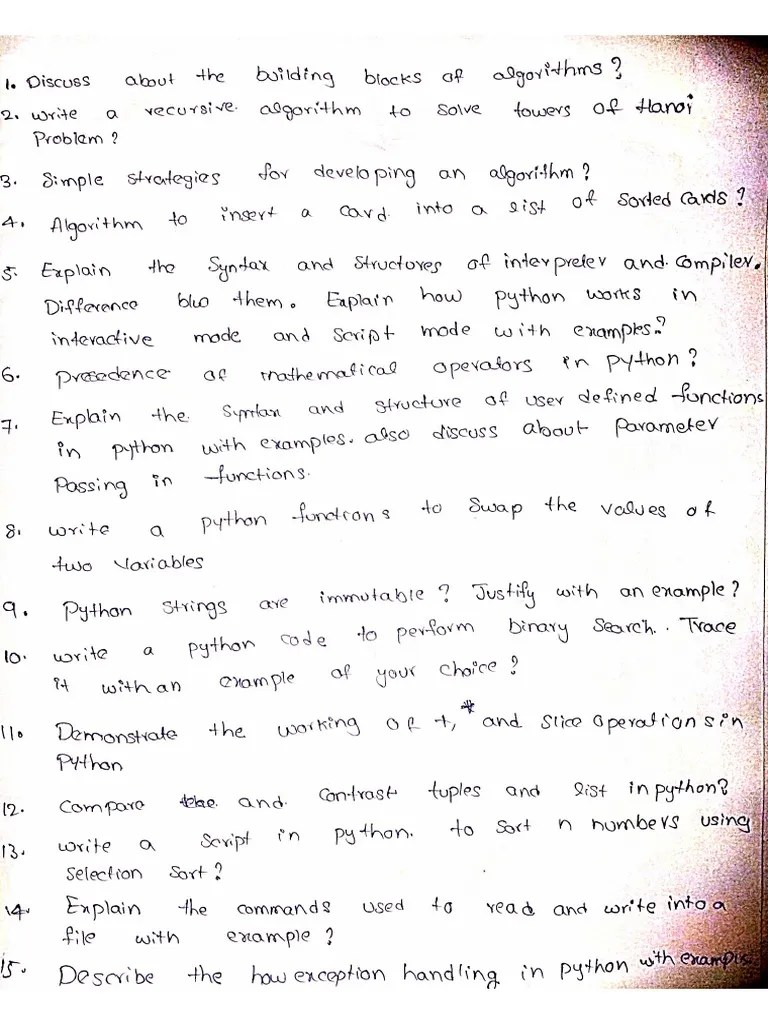 1. Discuss about the building blocks of algorithms?
2. write a recursive algorithm to solve towers of Hanoi
Problem?
3. Simple strategies for developing an algorithm?
4. Algorithm to insert a card into a list of Sorted Cards?
5. Explain the Syntax and Structures of interpreter and compiler.
Difference b/w them. Explain how python works in
interactive mode and script mode with examples?
6. Presedence of mathematical operators in python?
7. Explain the Syntax and structure of user defined functions
in python with examples. also discuss about Parameter
Passing in functions.
8. write a python functions to swap the values of
two Variables
9. Python strings are immutable? Justify with an example?
10. write a python code to perform binary Search. Trace
it with an example of your choice?
11. Demonstrate the working of +, * and slice operations in
Python
12. Compare the and contrast tuples and list in python?
13. write a Script in python. to sort n numbers using
selection sort?
14. Explain the commands used to read and write into a
file with example?
15. Describe the how exception handling in python with example.